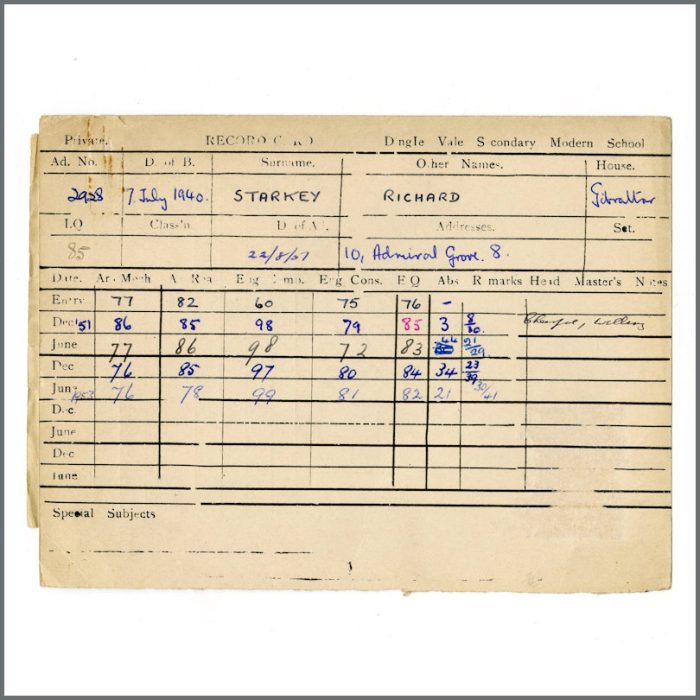 Private. RECORD C RD Dingle Vale S condary Modern School
Ad. No. D of B. Surname. Other Names. House.
2928 7 July 1940. STARKEY RICHARD Gibraltar
I.Q Class'n. D of A Addresses. Set.
85 10, Admiral Grove. 8.
Date. Ari Mech A Rea Eng Comp. Eng Cons. E Q Abs R marks Head Master's Notes
Entry 77 82 60 75 76 -
Dec 51 86 85 98 79 85 3 8/30. Cheerful, willing
June 77 86 98 72 83 44 21/29
Dec 76 85 97 80 84 34 23/39
June 1952 76 78 99 81 82 21 30/41
Dec
June
Dec
June
Special Subjects